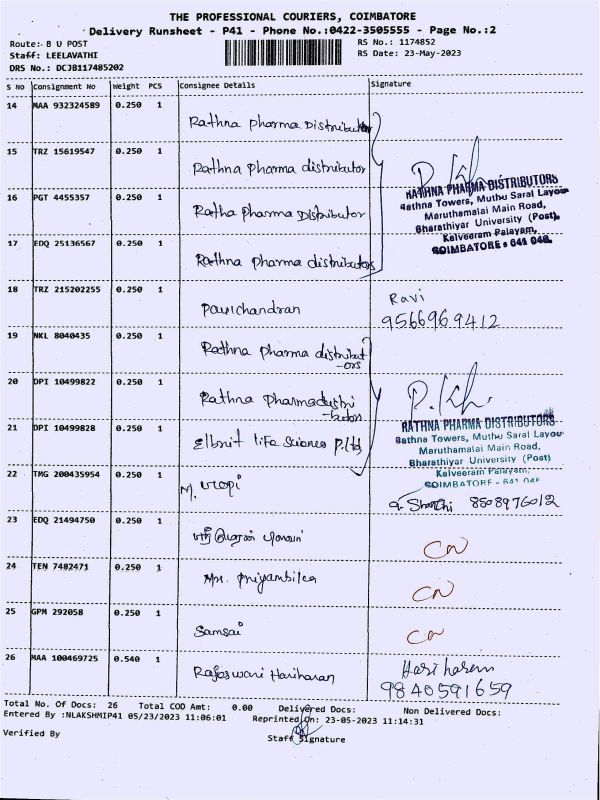 THE PROFESSIONAL COURIERS, COIMBATORE
Delivery Runsheet - P41 - Phone No.:0422-3505555 - Page No.:2
Route: B U POST RS No.: 1174852
Staff: LEELAVATHI RS Date: 23-May-2023
DRS No.: DCJB117485202
S No Consignment No Weight PCS Consignee Details Signature
14 MAA 932324589 0.250 1
Rathna Pharma Distributor
15 TRZ 15619547 0.250 1
Rathna pharma distributor
P. Kh
RATHNA PHARMA DISTRIBUTORS
16 PGT 4455357 0.250 1
Rathna Towers, Muthu Saral Layou
Ratha pharma Distributor
Maruthamalai Main Road,
Bharathiyar University (Post),
17 EDQ 25136567 0.250 1
Kalveeram Palayam,
COIMBATORE - 641 046.
Rathna pharma distributors
18 TRZ 215202255 0.250 1
Ravichandran
Ravi
9566969412
19 NKL 8040435 0.250 1
Rathna pharma distribut
-ors
20 DPI 10499822 0.250 1
Rathna pharmadistri
-butors
P. Kh.
RATHNA PHARMA DISTRIBUTORS
21 DPI 10499828 0.250 1
Rathna Towers, Muthu Saral Layou
life Science P.ltd
Maruthamalai Main Road,
Bharathiyar University (Post)
22 TMG 200435954 0.250 1
Kalveeram Palayam,
COIMBATORE - 641 046
M.
Shanthi 8508976012
23 EDQ 21494750 0.250 1
CN
24 TEN 7482471 0.250 1
Mrs.
CN
25 GPM 292058 0.250 1
Samsai
CN
26 MAA 100469725 0.540 1
Rajeswari Hariharan
Hariharan
9840591659
Total No. Of Docs: 26 Total COD Amt: 0.00 Delivered Docs: Non Delivered Docs:
Entered By :NLAKSHMIP41 05/23/2023 11:06:01 Reprinted On: 23-05-2023 11:14:31
Verified By Staff Signature